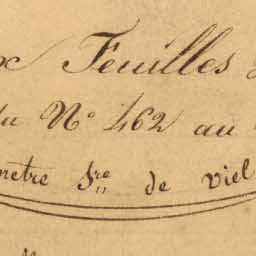 x Feuilles
du N° 462 au
metre Sre de viel